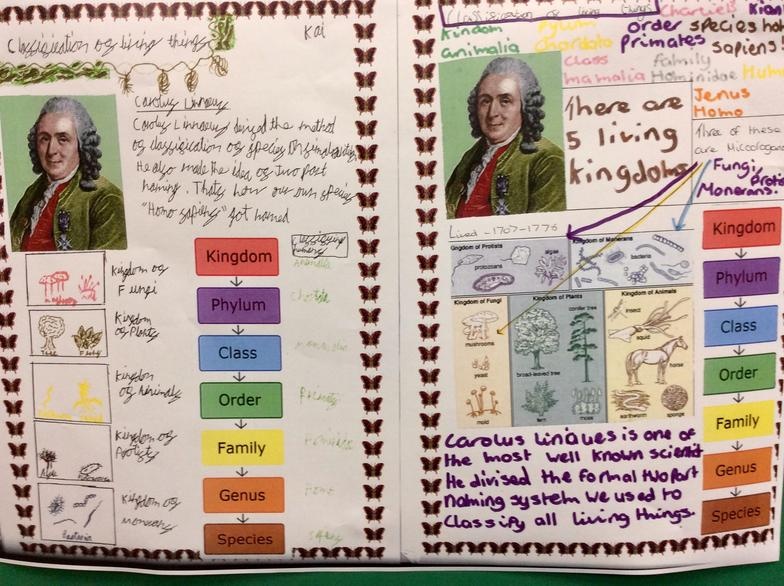 Kai
Classification of living things
Carolus Linnaeus
Carolus Linnaeus devised the method
of classification of species
He also made the idea of two part
naming. Thats how our own species
"Homo sapiens" got named
Kingdom
of Fungi
Kingdom
of Plants
Kingdom
of Animals
Kingdom
of Protists
Kingdom of
monerans
Tree
Bacteria
Kingdom
Phylum
Class
Order
Family
Genus
Species
humans
Homo
Classification of living things
Kindom
animalia
Pylum
chordata
order
Primates
species
sapiens
Class
mamalia
family
Hominidae
Jenus
Homo
There are
5 living
kingdoms
Three of these
are
Fungi,
Monerans.
Lived - 1707-1778
Kingdom of Protists
protozoans
algae
Kingdom of Monerans
bacteria
Kingdom of Fungi
mushrooms
yeast
mold
Kingdom of Plants
conifer tree
broad-leaved tree
fern
moss
Kingdom of Animals
insect
squid
horse
earthworm
sponge
Carolus linaues is one of
the most well known scientist
He divised the formal two Part
naming system we used to
Classify all living things.
Kingdom
Phylum
Class
Order
Family
Genus
Species